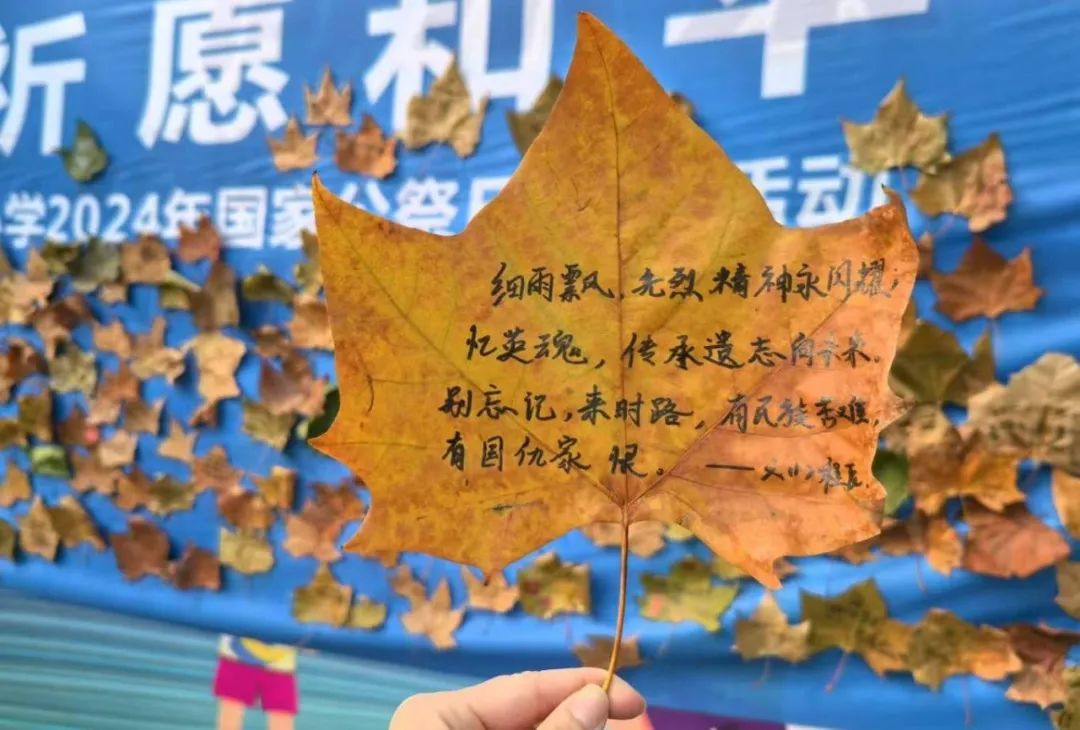 祈愿和平
小学2024年国家公祭日 活动
细雨飘,先烈精神永闪耀;
忆英魂,传承遗志向未来。
别忘记,来时路,有民族苦难,
有国仇家恨。——